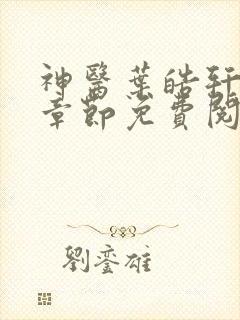 神醫葉皓軒
章節免費閱
劉鑾雄